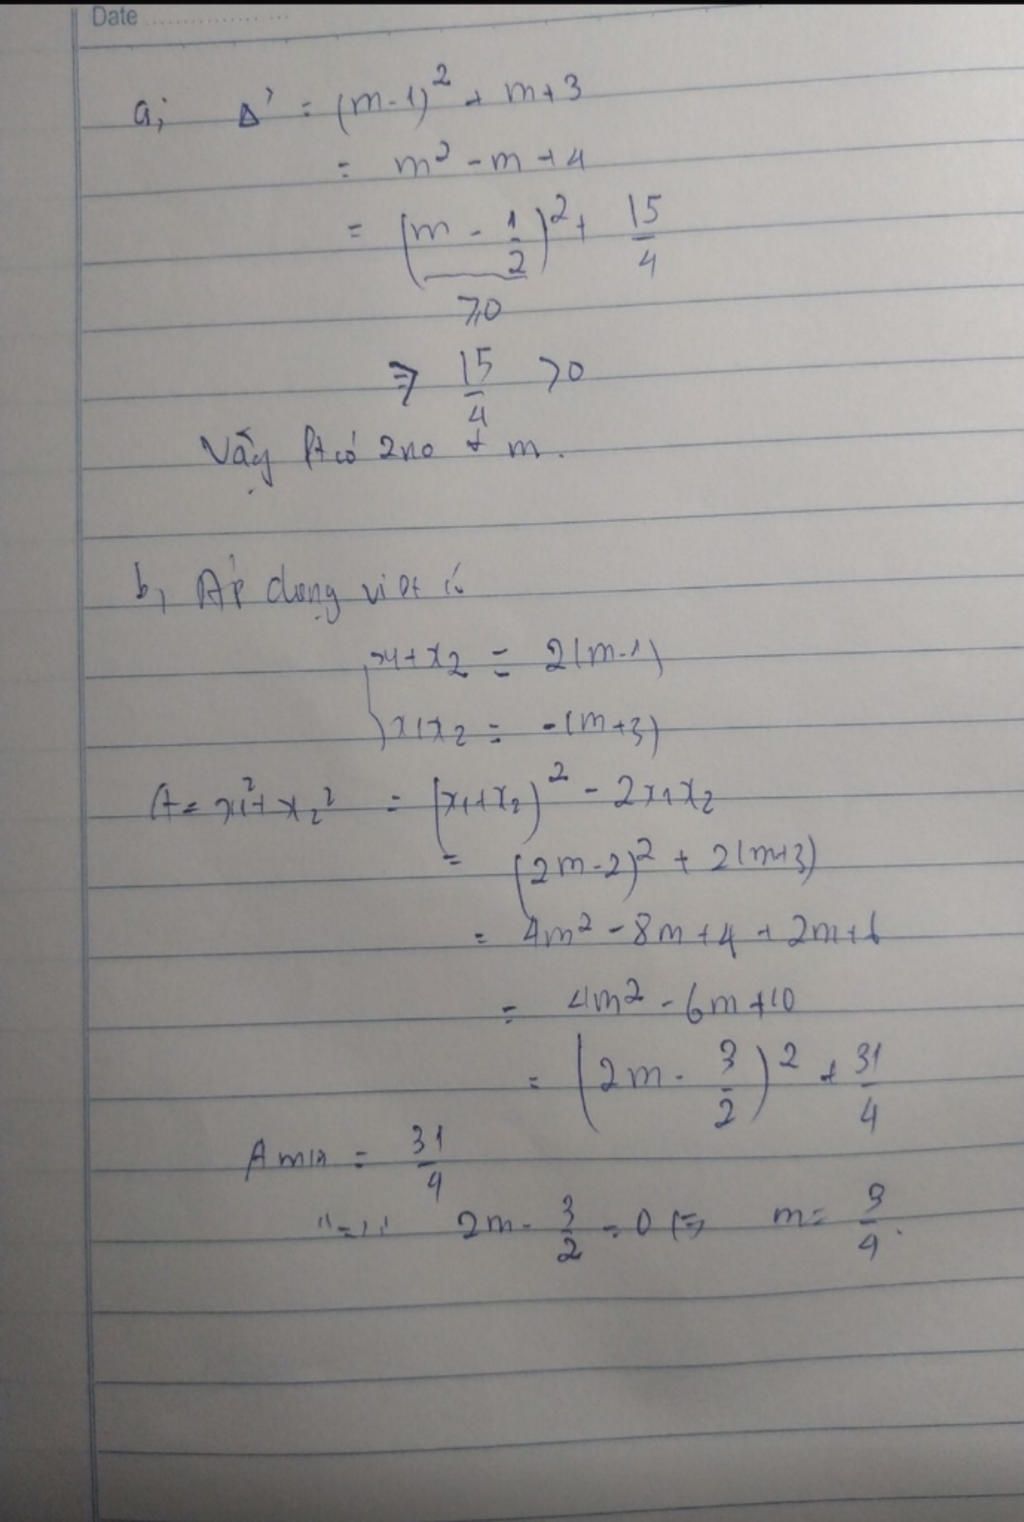 Date
a, Δ' = (m-1)² + m+3
= m² - m + 4
= (m - 1/2)² + 15/4
≥0
⇒ 15/4 >0
Vậy Pt có 2no ∀ m.
b, Áp dụng viét có
x1+x2 = 2(m-1)
x1x2 = -(m+3)
A = x1²+x2² = (x1+x2)² - 2x1x2
= (2m-2)² + 2(m+3)
= 4m² - 8m + 4 + 2m+6
= 4m² - 6m + 10
= (2m - 3/2)² + 31/4
A min = 31/4
"=" 2m - 3/2 = 0 ⇔ m = 3/4.